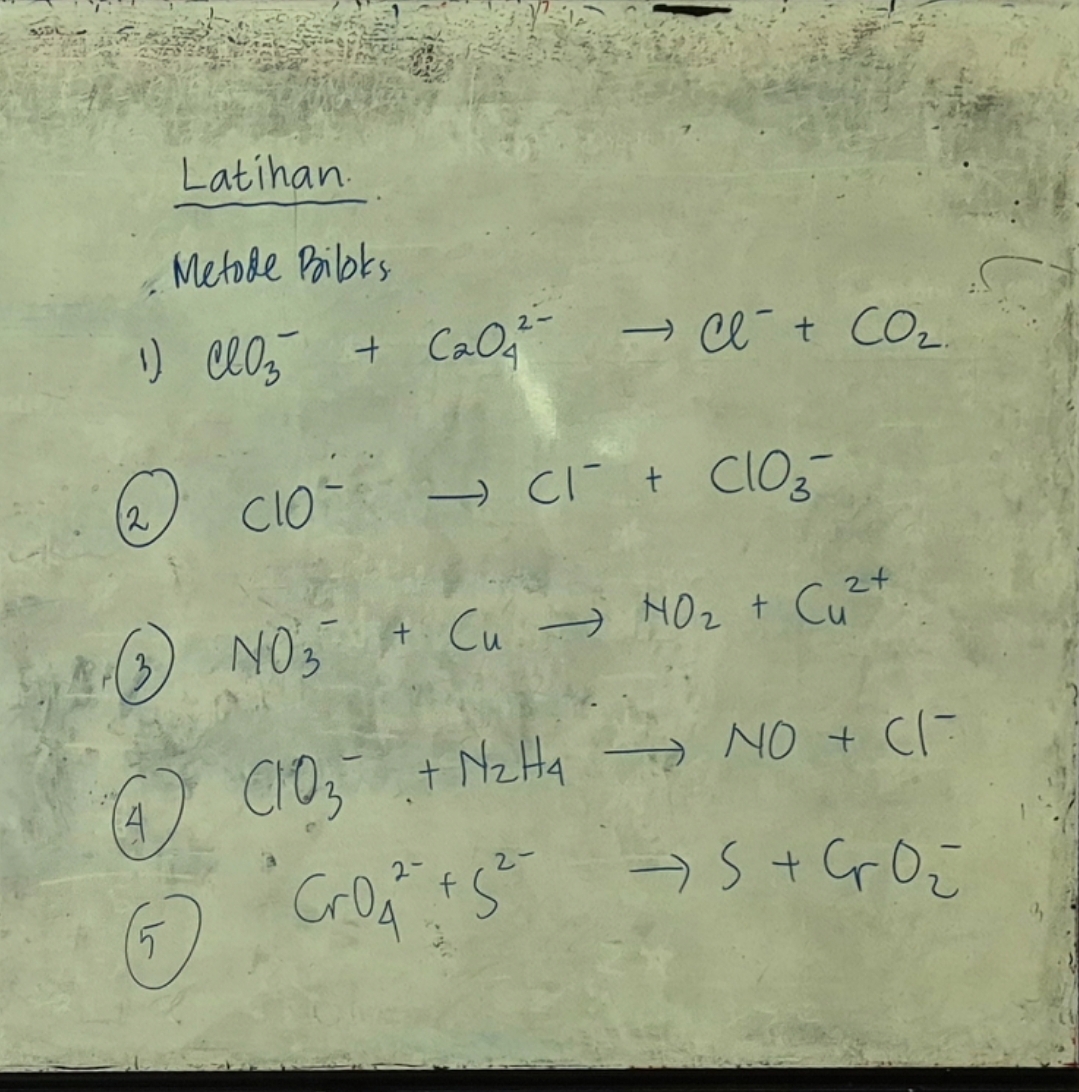 Latihan.
Metode Biloks
1) ClO₃⁻ + C₂O₄²⁻ → Cl⁻ + CO₂.
② ClO⁻ → Cl⁻ + ClO₃⁻
③ NO₃⁻ + Cu → NO₂ + Cu²⁺
④ ClO₃⁻ + N₂H₄ → NO + Cl⁻
⑤ CrO₄²⁻ + S²⁻ → S + CrO₂⁻